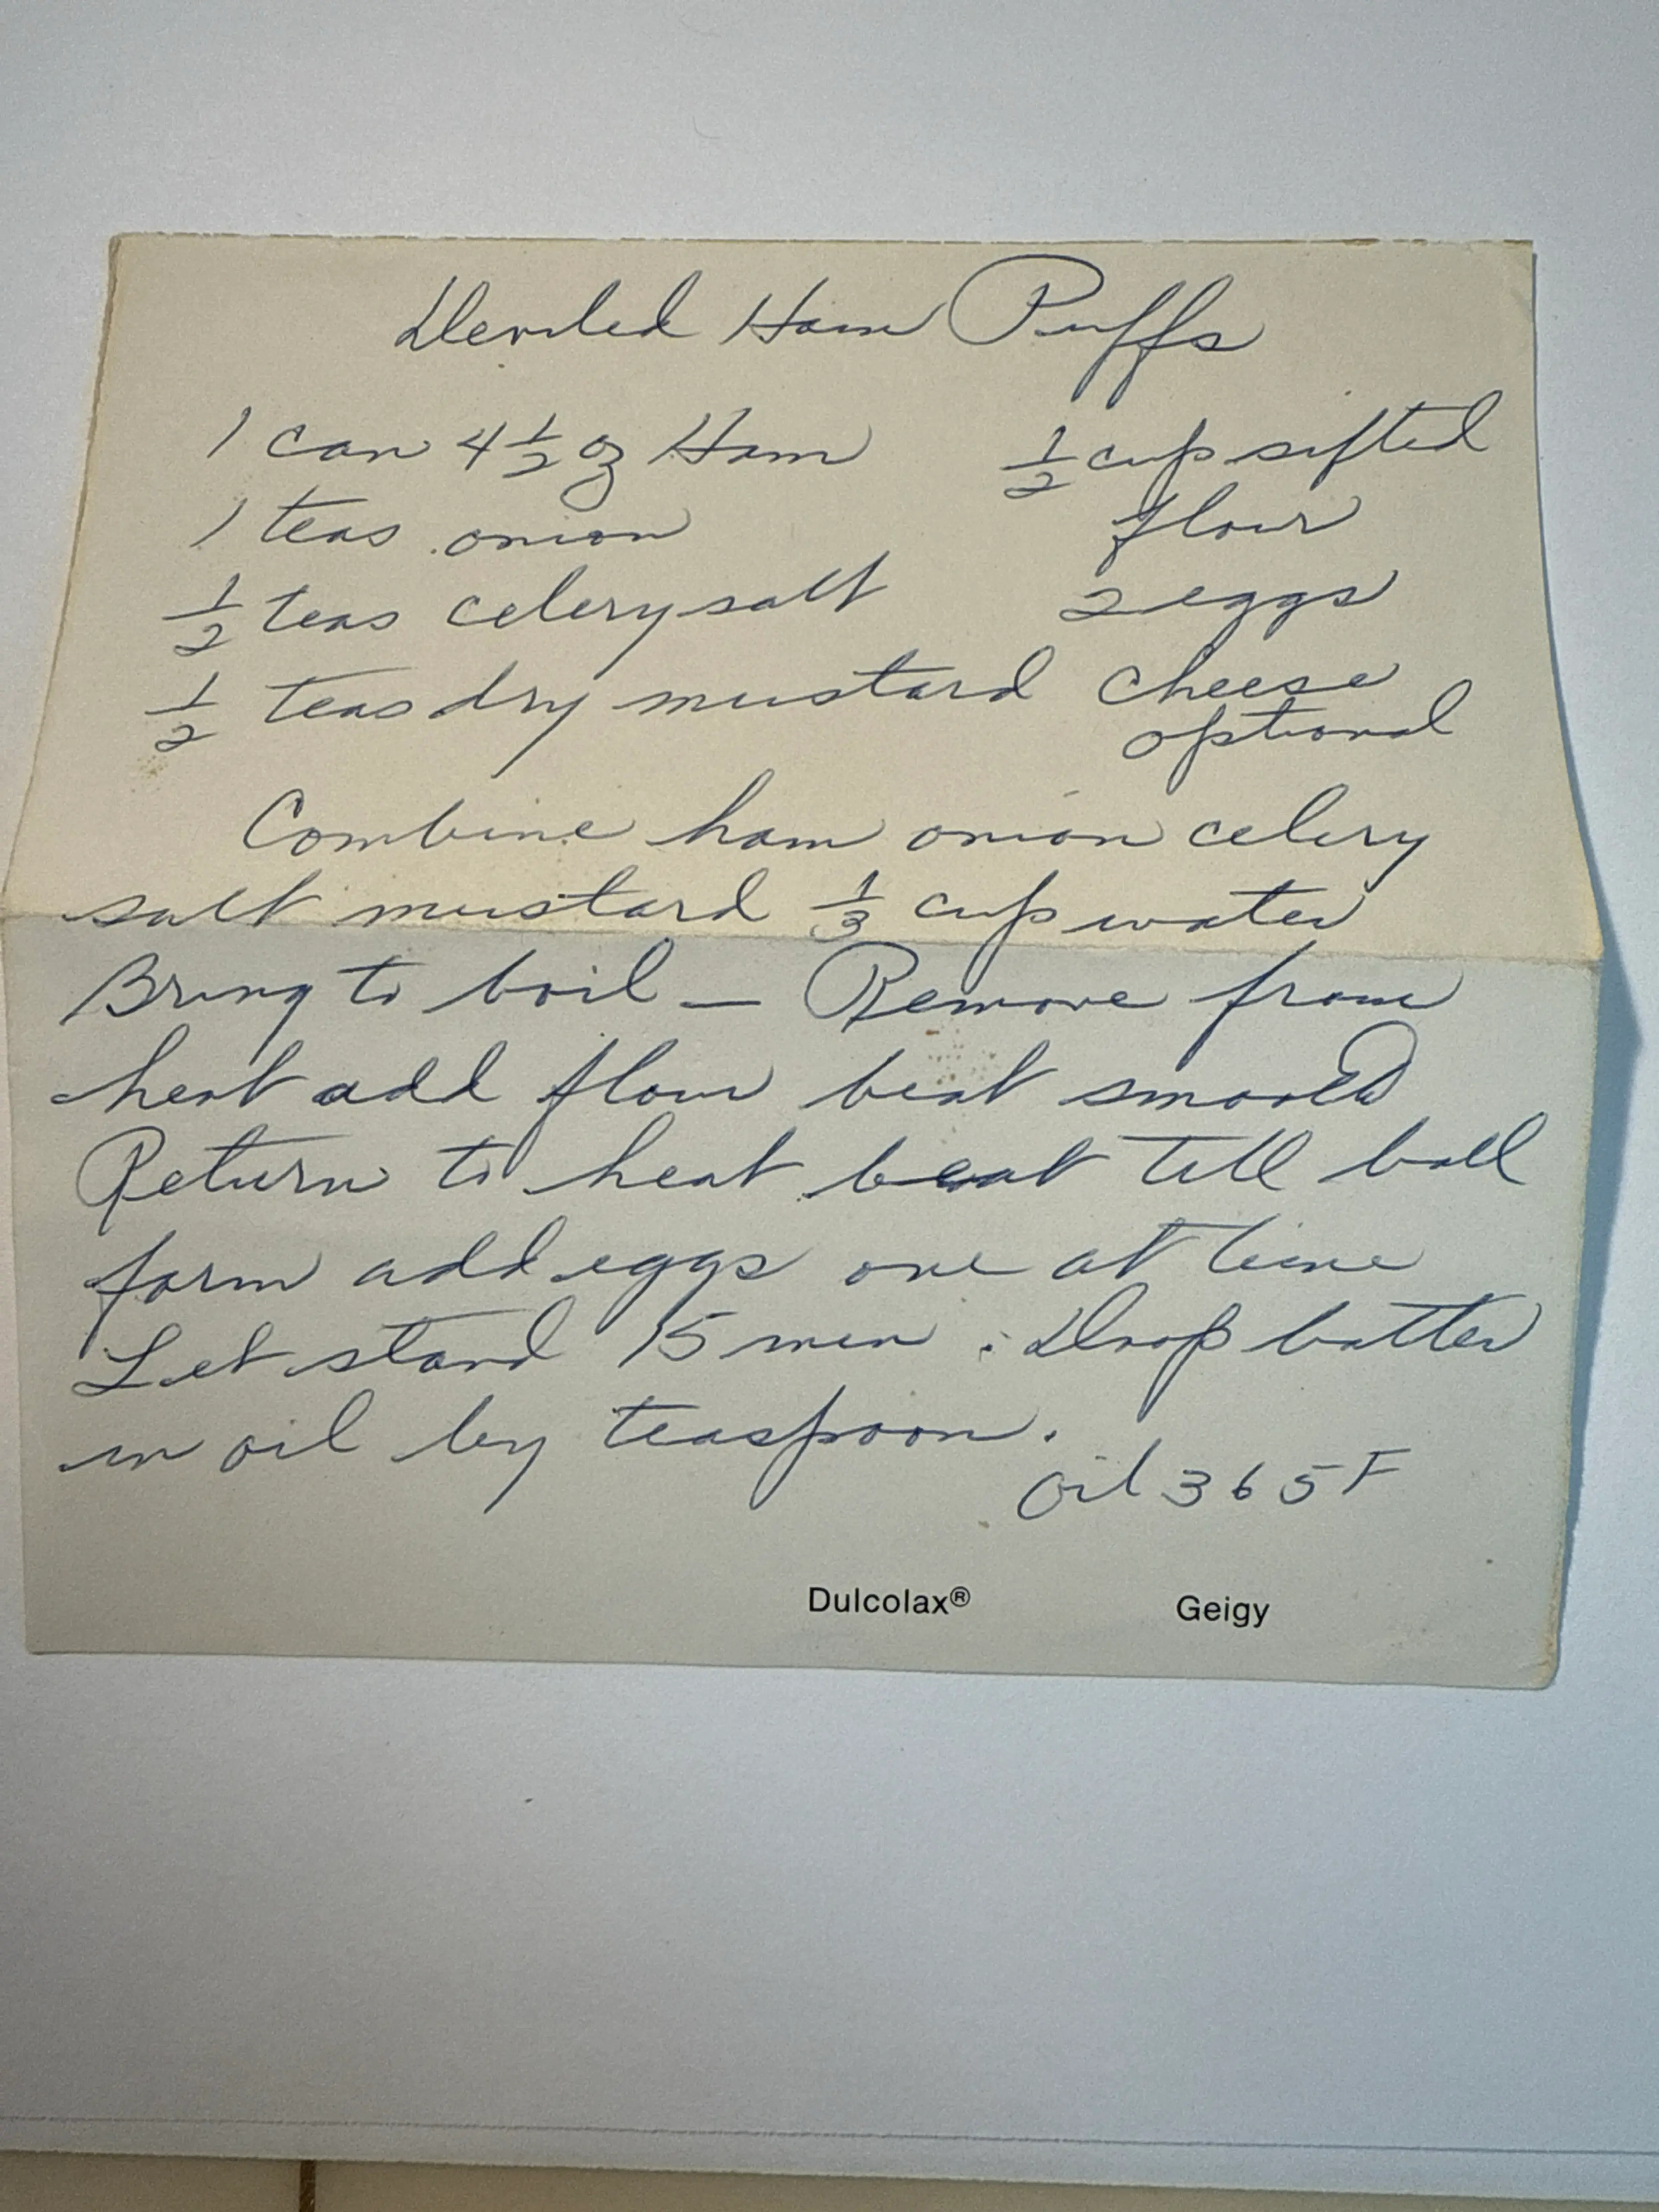 Deviled Ham Puffs
1 can 4 1/2 oz Ham
1 teas onion
1/2 teas celery salt
1/2 teas dry mustard
1/2 cup sifted
flour
2 eggs
cheese
optional
Combine ham onion celery
salt mustard 1/3 cup water
Bring to boil — Remove from
heat add flour beat smooth
Return to heat beat till ball
form add eggs one at time
Let stand 15 min. Drop batter
in oil by teaspoon.
Oil 365 F
Dulcolax® Geigy